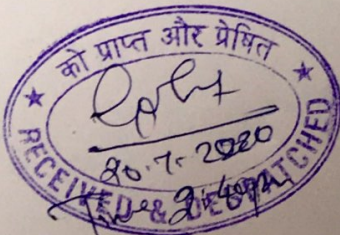 को प्राप्त और प्रेषित
20.7.2020
RECEIVED & DESPATCHED